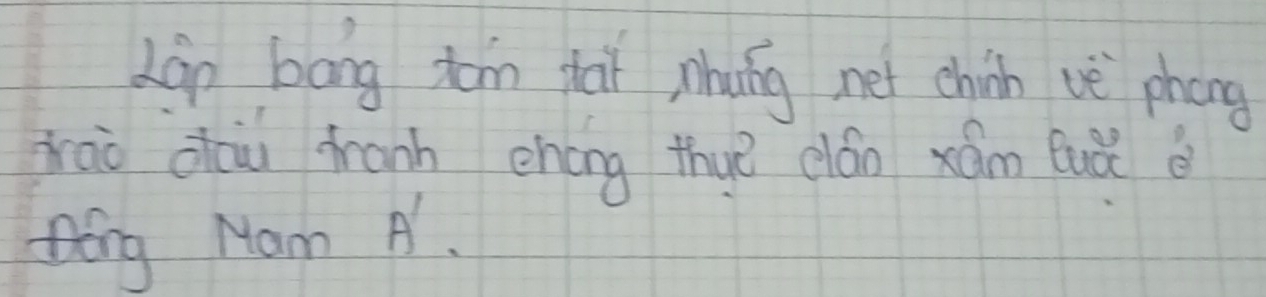 Lập bảng tóm tắt những nét chính về phong
trào đấu tranh chống thực dân xâm lược ở
Đông Nam Á.